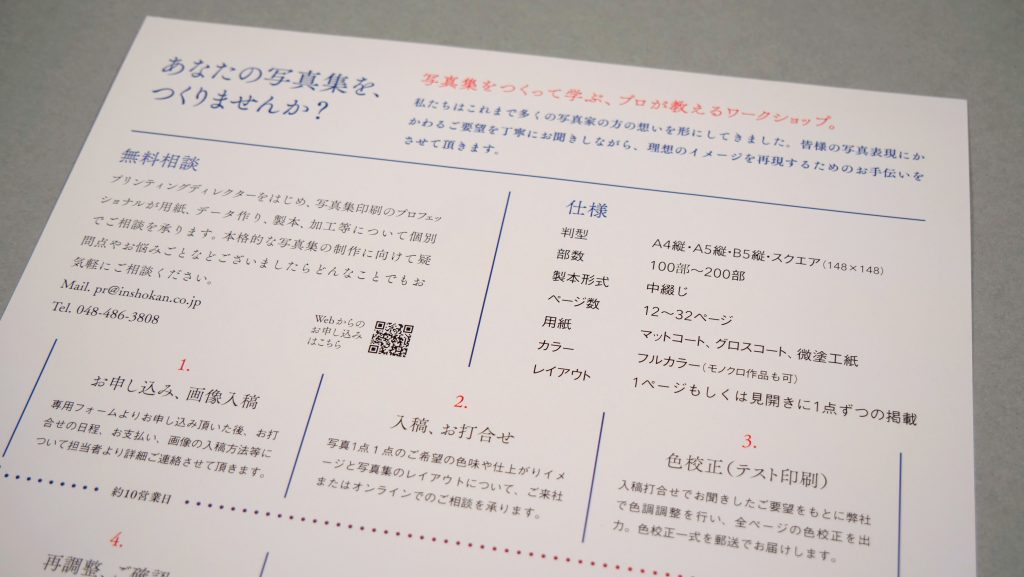 あなたの写真集を、
つくりませんか？
写真集をつくって学ぶ、プロが教えるワークショップ。
私たちはこれまで多くの写真家の方の想いを形にしてきました。皆様の写真表現にか
かわるご要望を丁寧にお聞きしながら、理想のイメージを再現するためのお手伝いを
させて頂きます。
無料相談
プリンティングディレクターをはじめ、写真集印刷のプロフェッ
ショナルが用紙、データ作り、製本、加工等について個別
でご相談を承ります。本格的な写真集の制作に向けて疑
問点やお悩みごとなどございましたらどんなことでもお
気軽にご相談ください。
Mail. pr@inshokan.co.jp
Tel. 048-486-3808
Webからの
お申し込み
はこちら
仕様
判型 A4縦・A5縦・B5縦・スクエア（148×148）
部数 100部〜200部
製本形式 中綴じ
ページ数 12〜32ページ
用紙 マットコート、グロスコート、微塗工紙
カラー フルカラー（モノクロ作品も可）
レイアウト 1ページもしくは見開きに1点ずつの掲載
1.
お申し込み、画像入稿
専用フォームよりお申し込み頂いた後、お打
合せの日程、お支払い、画像の入稿方法等に
ついて担当者より詳細ご連絡させて頂きます。
2.
入稿、お打合せ
写真1点1点のご希望の色味や仕上がりイメ
ージと写真集のレイアウトについて、ご来社
またはオンラインでのご相談を承ります。
3.
色校正（テスト印刷）
入稿打合せでお聞きしたご要望をもとに弊社
で色調調整を行い、全ページの色校正を出
力。色校正一式を郵送でお届けします。
約10営業日
4.
再調整、ご確認